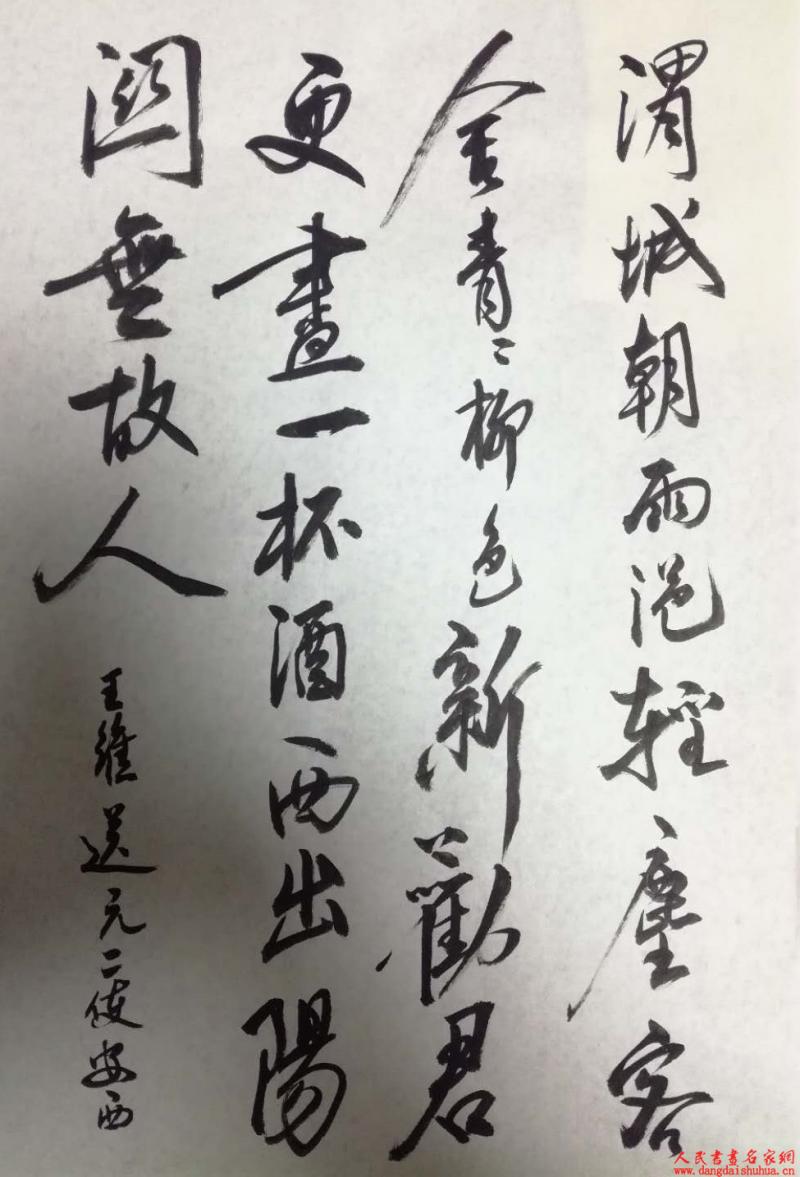 渭城朝雨浥輕塵客
舍青〻柳色新勸君
更盡一杯酒西出陽
關無故人
王維送元二使安西
人民書畫名家網
www.dangdaishuhua.cn